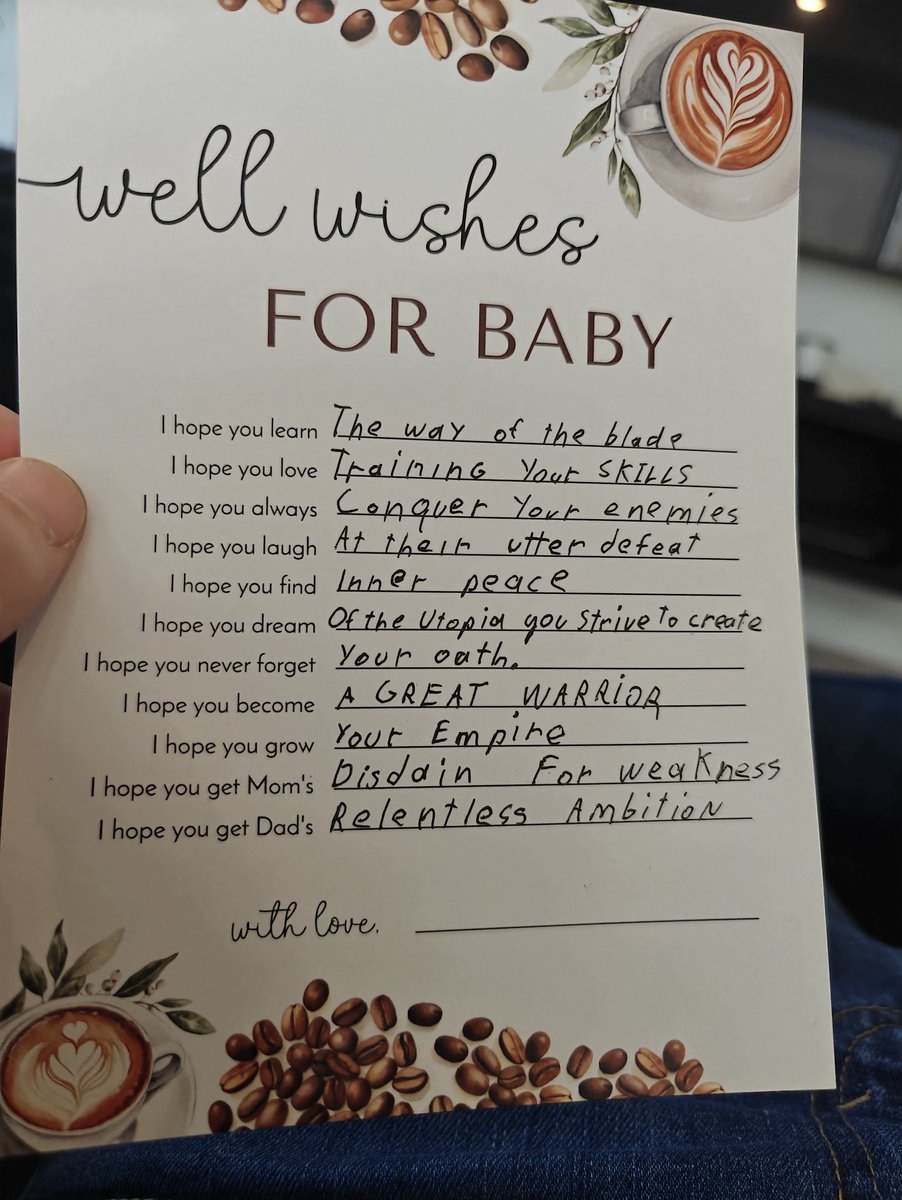 well wishes
FOR BABY
I hope you learn The way of the blade
I hope you love Training Your SKILLS
I hope you always Conquer Your enemies
I hope you laugh At their utter defeat
I hope you find Inner peace
I hope you dream Of the Utopia you Strive To create
I hope you never forget Your oath.
I hope you become A GREAT WARRIOR
I hope you grow Your Empire
I hope you get Mom's Disdain For weakness
I hope you get Dad's Relentless Ambition
with love,